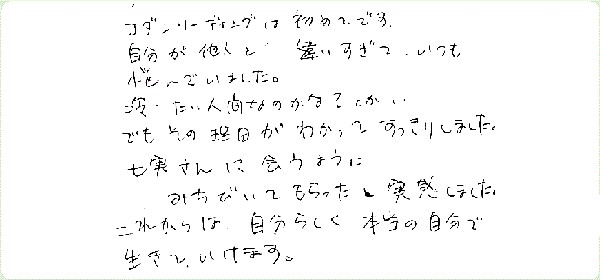 リーディングは初めてです。
自分が他人と 違いすぎて、いつも
悩んでいました。
冷たい人間なのかなる とか、
でもその理由がわかってすっきりしました。
七実さんに会うように
みちびいてもらったと実感しました。
これからは、自分らしく 本当の自分で
生きていけます。